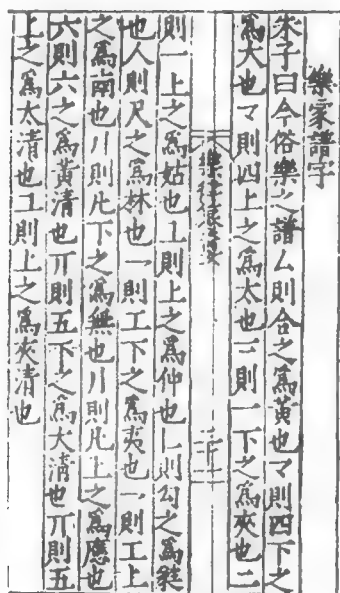 樂家譜字
朱子曰今俗樂之譜厶則合之爲黃也マ則四下之
爲大也マ則四上之爲太也二則一下之爲夾也二
則一上之爲姑也丄則上之爲仲也ㄴ則勾之爲蕤
也人則尺之爲林也一則工下之爲夷也一則工上
之爲南也〢則凡下之爲無也〢則凡上之爲應也
六則六之爲黃清也丌則五下之爲大清也丌則五
上之爲太清也工則上之爲夾清也